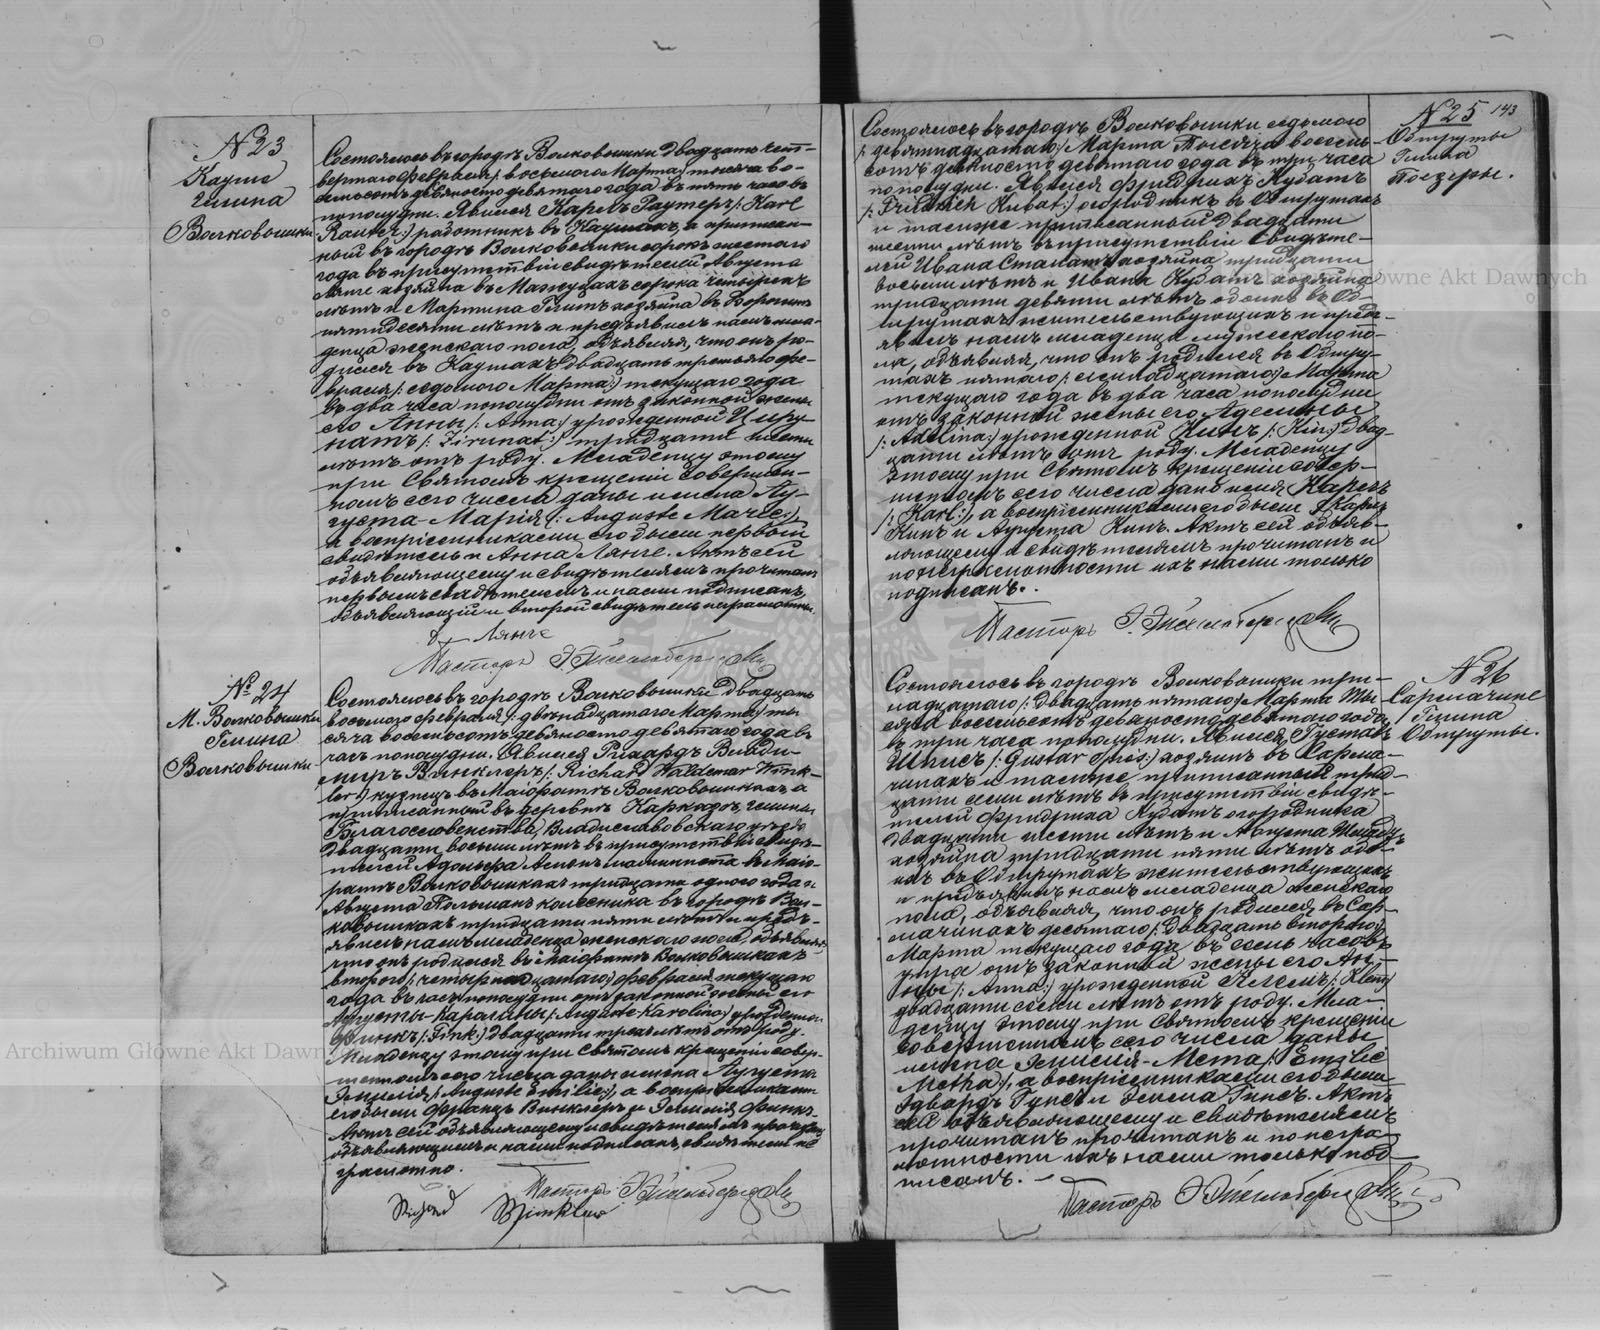 № 23
Кауше
гмина
Волковышки
Состоялось въ городѣ Волковышки двадцать чет-
вертаго Февраля /: восьмого Марта :/ тысяча во-
семьсотъ девяносто девятаго года въ пять часовъ
пополудни. Явился Карлъ Раутеръ /: Karl
Rauter :/ работникъ въ Каушахъ, а приписан-
ный въ городѣ Волковышки сорокъ шестаго
года въ присутствіи свидѣтелей Августа
Лянге хозяйна въ Мажуцахъ сорока четырехъ
лѣтъ и Мартина хозяйна въ
пятидесяти лѣтъ и предъявилъ намъ мла-
денца женскаго пола, объявляя, что онъ ро-
дился въ Каушахъ двадцать третьяго Фе-
враля /: седьмого Марта :/ текущаго года
въ два часа пополудни отъ законной жены
его Анны /: Anna :/ урожденной Циру-
натъ /: Zirunat :/ тридцати шести
лѣтъ отъ роду. Младенцу этому
при Святомъ крещеніи совершен-
номъ сего числа даны имена Ау-
густа Марія /: Auguste Marie :/,
а воспріемниками его были первый
свидѣтель и Анна Лянге. Актъ сей
объявляющему и свидѣтелямъ прочитанъ
первымъ свидѣтелемъ и нами подписанъ,
объявляющій и второй свидѣтель неграмотны.
Лянге
Пасторъ
№ 24
М. Волковышки
Гмина
Волковышки
Состоялось въ городѣ Волковышки двадцать
восьмого Февраля /: двѣнадцатаго Марта :/ ты-
сяча восемьсотъ девяносто девятаго года въ
часъ пополудни. Явился Ришардъ Влади-
миръ Винклеръ /: Richard Waldemar Wink-
ler :/ кузнецъ въ Маіоратѣ Волковышкахъ а
приписанный въ деревнѣ гмины
Благословенства, Владиславовскаго уѣзда
двадцати восьми лѣтъ въ присутствіи свидѣ-
телей Адольфа машиниста въ Маіо-
ратѣ Волковышкахъ тридцати одного года и
Августа Польманъ колесника въ городѣ Вол-
ковышкахъ тридцати пяти лѣтъ и предъ-
явилъ намъ младенца женскаго пола, объявляя,
что онъ родился въ Маіоратѣ Волковышкахъ
второго /: четырнадцатаго :/ Февраля текущаго
года въ часъ пополудни отъ законной жены его
Августы-Каролины /: Auguste Karolina :/ урожденной
Финкъ /: Fink :/ двадцати трехъ лѣтъ отъ роду.
Младенцу этому при Святомъ крещеніи совер-
шенномъ сего числа даны имена Аугуста
Эмилія /: Auguste Emilie :/, а воспріемниками
его были Францъ Винклеръ и Эмилія Финкъ.
Актъ сей объявляющему и свидѣтелямъ прочитанъ
объявляющимъ и нами подписанъ, свидѣтели не
грамотно.
Пасторъ
Richard Winkler
№ 25 143
Обшруты
Гмина
Поезеры.
Состоялось въ городѣ Волковышки седьмого
/: девятнадцатаго :/ Марта тысяча восемь-
сотъ девяносто девятаго года въ три часа
пополудни. Явился Фридрихъ Кубатъ
/: Friedrich Kubat :/ огородникъ въ Обшрутахъ
и тамже приписанный двадцати
шести лѣтъ въ присутствіи свидѣте-
лей Ивана хозяйна тридцати
восьми лѣтъ и Ивана Кубатъ хозяйна
тридцати девяти лѣтъ обоихъ въ Об-
шрутахъ жительствующихъ и предъ-
явилъ намъ младенца мужескаго по-
ла, объявляя, что онъ родился въ Обшру-
тахъ пятаго /: семнадцатаго :/ Марта
текущаго года въ два часа пополудни
отъ законной жены его Аделины
/: Adelina :/ урожденной Кинъ /: Kin :/ двад-
цати лѣтъ отъ роду. Младенцу
этому при Святомъ крещеніи совер-
шенномъ сего числа дано имя Карлъ
/: Karl :/, а воспріемниками его были Карлъ
Кинъ и Аугуста Кинъ. Актъ сей объяв-
ляющему и свидѣтелямъ прочитанъ и
по неграмотности ихъ нами только
подписанъ.
Пасторъ
№ 26
Сармачине
Гмина
Обшруты.
Состоялось въ городѣ Волковышки три-
надцатаго /: двадцать пятаго :/ Марта ты-
сяча восемьсотъ девяносто девятаго года
въ три часа пополудни. Явился Густавъ
Шписъ /: Gustav Spies :/ хозяинъ въ Сарма-
чинахъ и тамже приписанный трид-
цати семи лѣтъ въ присутствіи свидѣ-
телей Фридриха Кубатъ огородника
двадцати шести лѣтъ и Августа
хозяйна тридцати пяти лѣтъ обо-
ихъ въ Обшрутахъ жительствующихъ
и предъявилъ намъ младенца женскаго
пола, объявляя, что онъ родился въ Сар-
мачинахъ десятаго /: двадцать второго :/
Марта текущаго года въ семь часовъ
утра отъ законной жены его Ан-
ны /: Anna :/ урожденной Клемъ /: Klem :/
двадцати семи лѣтъ отъ роду. Мла-
денцу этому при Святомъ крещеніи
совершенномъ сего числа даны
имена Эмилія-Мета /: Emilie
Metha :/, а воспріемниками его были
Эдвардъ и Эмма. Актъ
сей объявляющему и свидѣтелямъ
прочитанъ прочитанъ и по негра-
мотности ихъ нами только под-
писанъ.
Пасторъ
Archiwum Główne Akt Dawnych
Główne Akt Dawnych